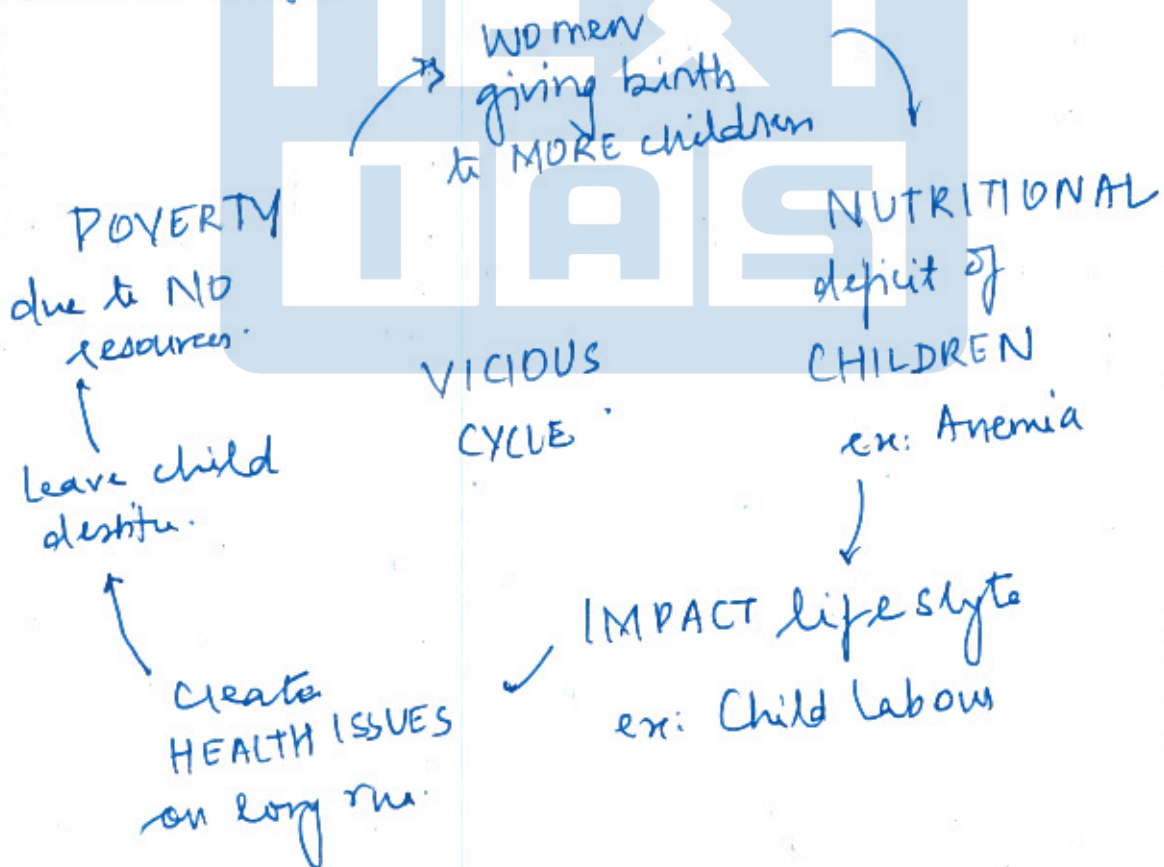 NEXT
IAS
women
giving birth
to MORE children
NUTRITIONAL
deficit of
CHILDREN
ex: Anemia
IMPACT lifeslyte
ex: Child labour
Create
HEALTH ISSUES
on long run.
Leave child
destitu.
POVERTY
due to NO
resources.
VICIOUS
CYCLE.